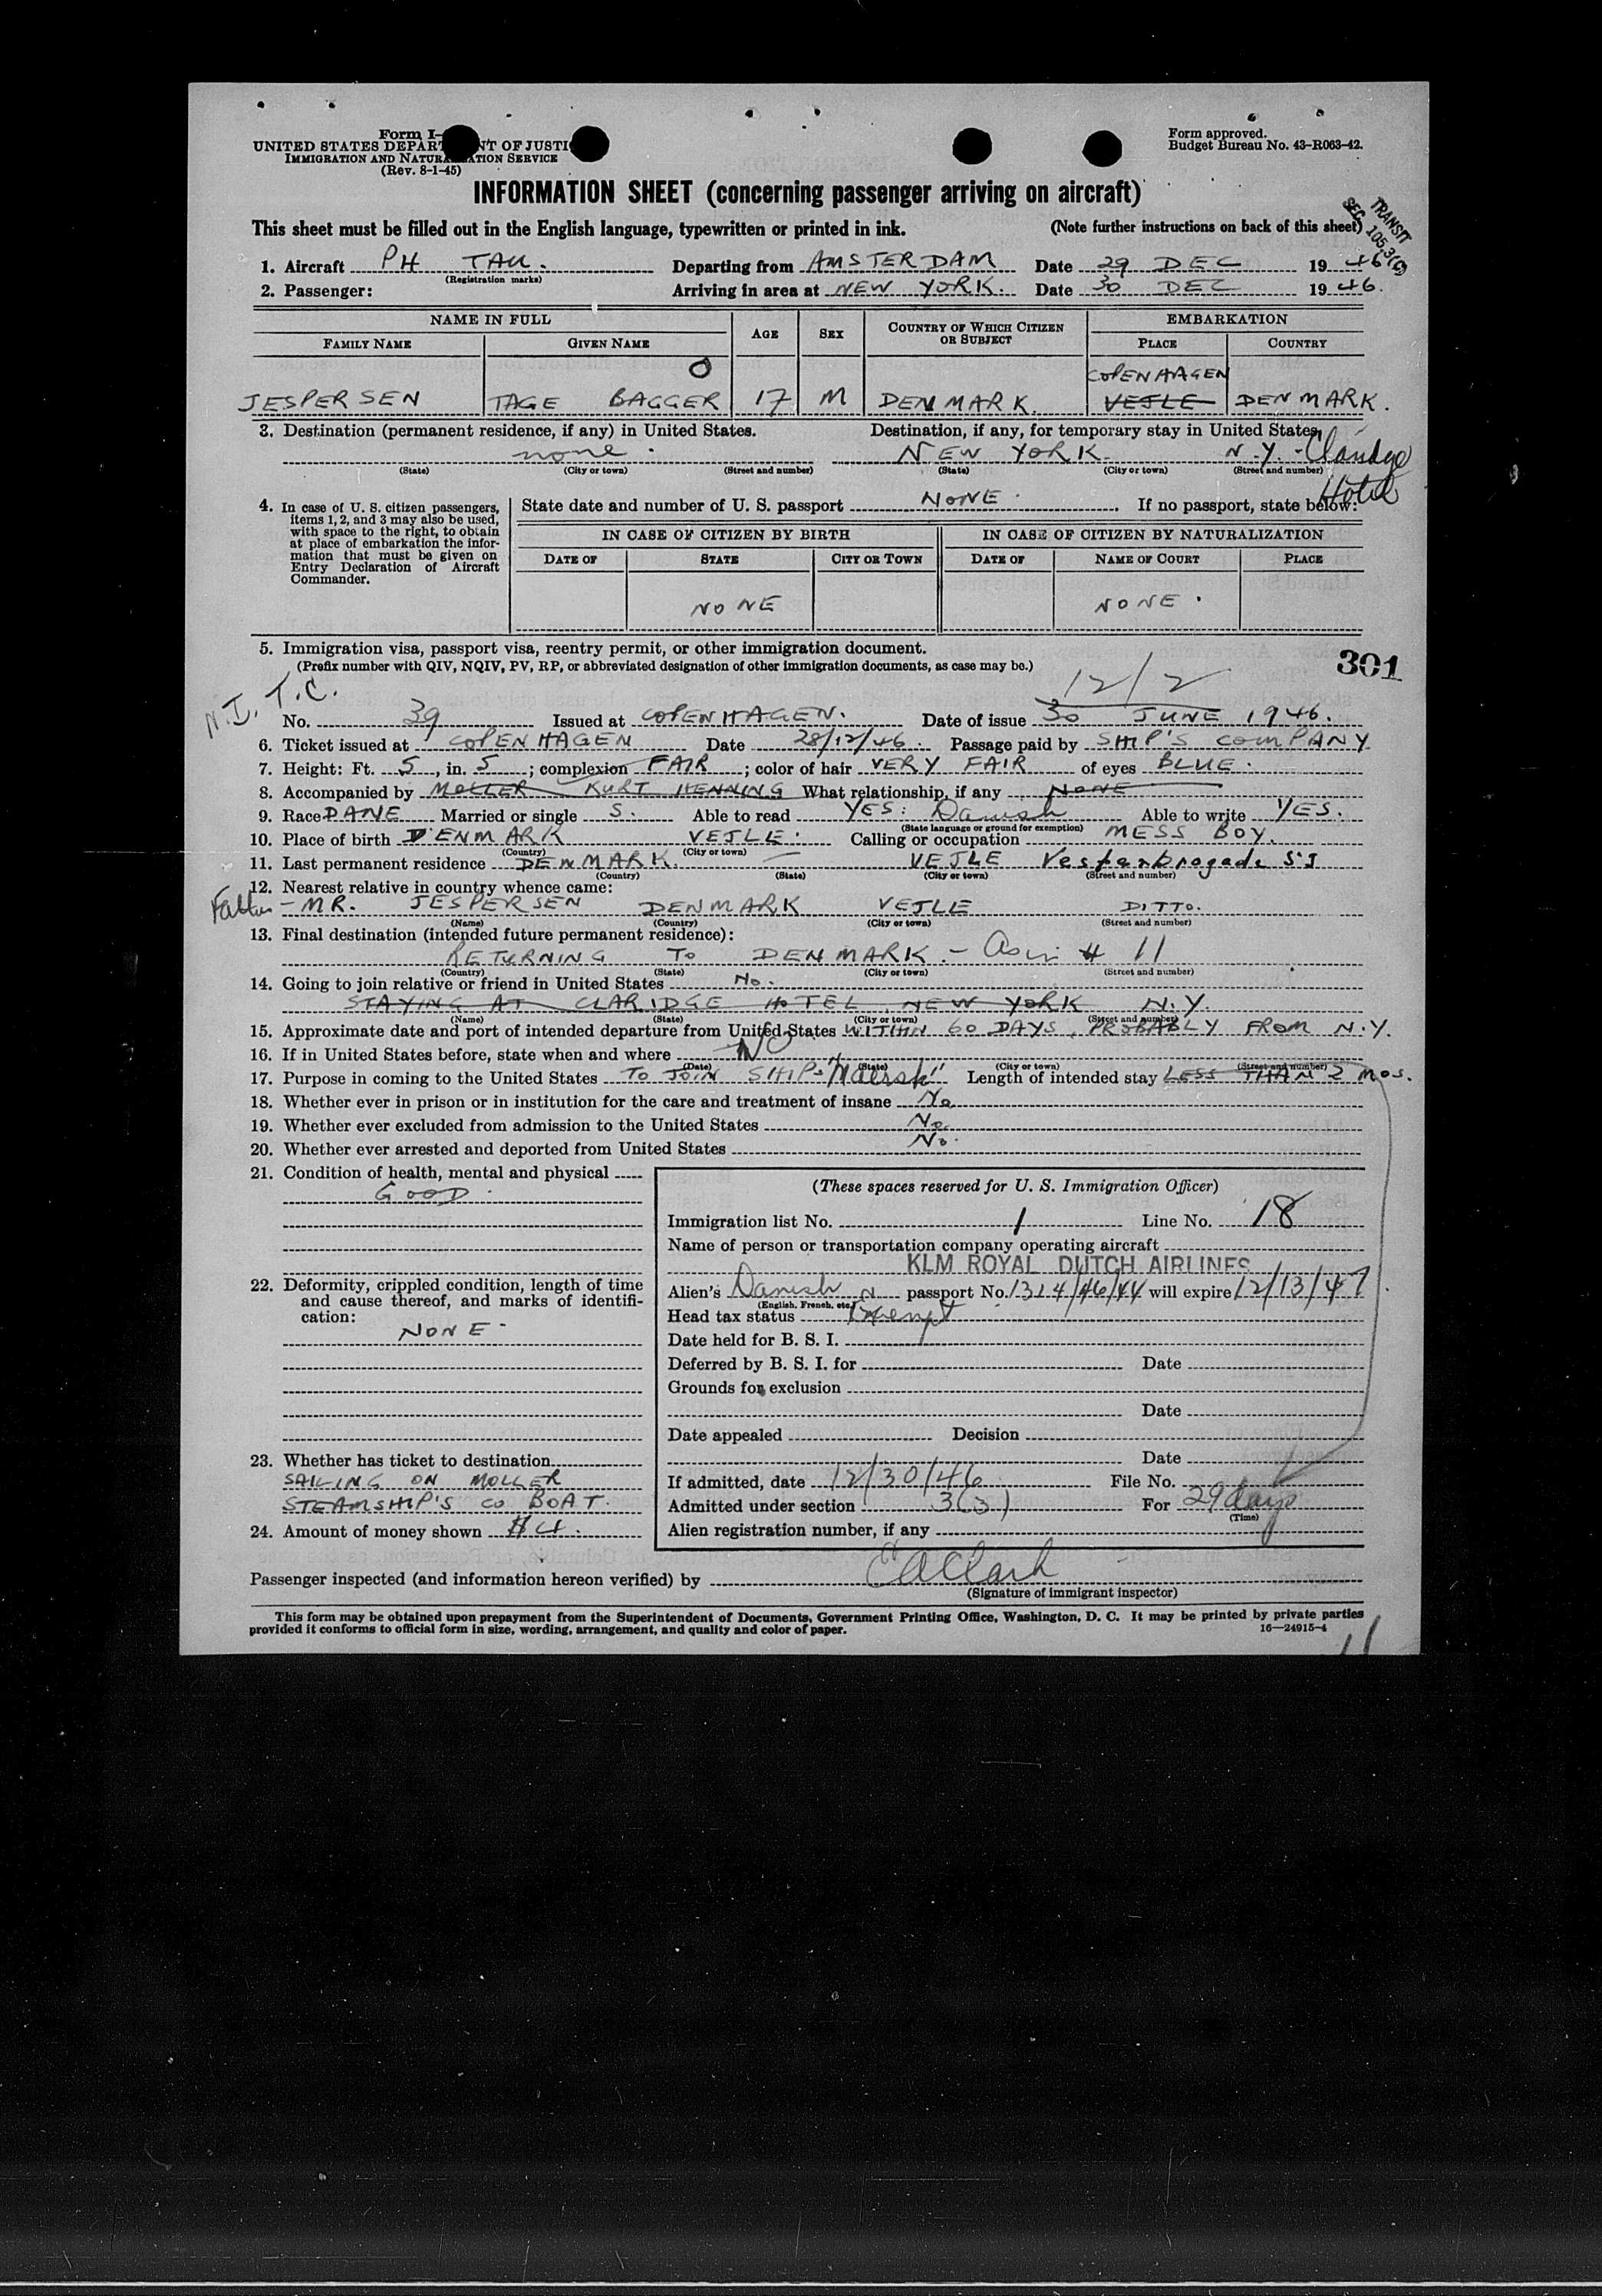 Form I-
UNITED STATES DEPART NT OF JUSTI
IMMIGRATION AND NATURA ATION SERVICE
(Rev. 8-1-45)
Form approved.
Budget Bureau No. 43-R063-42.
INFORMATION SHEET (concerning passenger arriving on aircraft)
TRANSIT
SEC 105.3(C)
This sheet must be filled out in the English language, typewritten or printed in ink. (Note further instructions on back of this sheet)
1. Aircraft PH TAU. Departing from AMSTERDAM Date 29 DEC 1946
(Registration marks)
2. Passenger: Arriving in area at NEW YORK. Date 30 DEC 1946.
NAME IN FULL AGE SEX COUNTRY OF WHICH CITIZEN OR SUBJECT EMBARKATION
FAMILY NAME GIVEN NAME PLACE COUNTRY
O COPENHAGEN
JESPERSEN TAGE BAGGER 17 M DENMARK. VEJLE DENMARK.
3. Destination (permanent residence, if any) in United States. Destination, if any, for temporary stay in United States,
none. NEW YORK. N.Y. - Claridge Hotel
(State) (City or town) (Street and number) (State) (City or town) (Street and number)
4. In case of U. S. citizen passengers, items 1, 2, and 3 may also be used, with space to the right, to obtain at place of embarkation the information that must be given on Entry Declaration of Aircraft Commander.
State date and number of U. S. passport NONE. If no passport, state below:
IN CASE OF CITIZEN BY BIRTH IN CASE OF CITIZEN BY NATURALIZATION
DATE OF STATE CITY OR TOWN DATE OF NAME OF COURT PLACE
NONE NONE.
5. Immigration visa, passport visa, reentry permit, or other immigration document.
(Prefix number with QIV, NQIV, PV, RP, or abbreviated designation of other immigration documents, as case may be.)
301
N.I.T.C. 12/2
No. 39 Issued at COPENHAGEN. Date of issue 30 JUNE 1946.
6. Ticket issued at COPENHAGEN Date 28/12/46. Passage paid by SHIP'S COMPANY
7. Height: Ft. 5, in. 5; complexion FAIR; color of hair VERY FAIR of eyes BLUE.
8. Accompanied by MOLLER KURT HENNING What relationship, if any NONE
9. Race DANE Married or single S. Able to read YES: Danish Able to write YES.
(State language or ground for exemption)
10. Place of birth DENMARK VEJLE. Calling or occupation MESS BOY.
(Country) (City or town)
11. Last permanent residence DENMARK. — VEJLE
(Country) (State) (City or town) (Street and number)
12. Nearest relative in country whence came:
Father - MR. JESPERSEN DENMARK VEJLE DITTO.
(Name) (Country) (City or town) (Street and number)
13. Final destination (intended future permanent residence):
RETURNING TO DENMARK. - As in # 11
(Country) (State) (City or town) (Street and number)
14. Going to join relative or friend in United States No.
STAYING AT CLARIDGE HOTEL NEW YORK N.Y.
(Name) (State) (City or town) (Street and number)
15. Approximate date and port of intended departure from United States WITHIN 60 DAYS, PROBABLY FROM N.Y.
16. If in United States before, state when and where NO
(Date) (State) (City or town) (Street and number)
17. Purpose in coming to the United States TO JOIN SHIP "Maersk" Length of intended stay LESS THAN 2 MOS.
18. Whether ever in prison or in institution for the care and treatment of insane No
19. Whether ever excluded from admission to the United States No.
20. Whether ever arrested and deported from United States No.
21. Condition of health, mental and physical
GOOD.
22. Deformity, crippled condition, length of time and cause thereof, and marks of identification:
NONE.
23. Whether has ticket to destination
SAILING ON MOLLER
STEAMSHIP'S CO BOAT.
24. Amount of money shown $4.
(These spaces reserved for U. S. Immigration Officer)
Immigration list No. 1 Line No. 18
Name of person or transportation company operating aircraft
KLM ROYAL DUTCH AIRLINES
Alien's Danish N passport No. 1314/46/44 will expire 12/13/47
(English, French, etc.)
Head tax status Exempt
Date held for B. S. I.
Deferred by B. S. I. for Date
Grounds for exclusion
Date
Date appealed Decision
Date
If admitted, date 12/30/46 File No.
Admitted under section 3(3) For 29 days
(Time)
Alien registration number, if any
Passenger inspected (and information hereon verified) by E A Clark
(Signature of immigrant inspector)
This form may be obtained upon prepayment from the Superintendent of Documents, Government Printing Office, Washington, D. C. It may be printed by private parties
provided it conforms to official form in size, wording, arrangement, and quality and color of paper. 16—24915-4